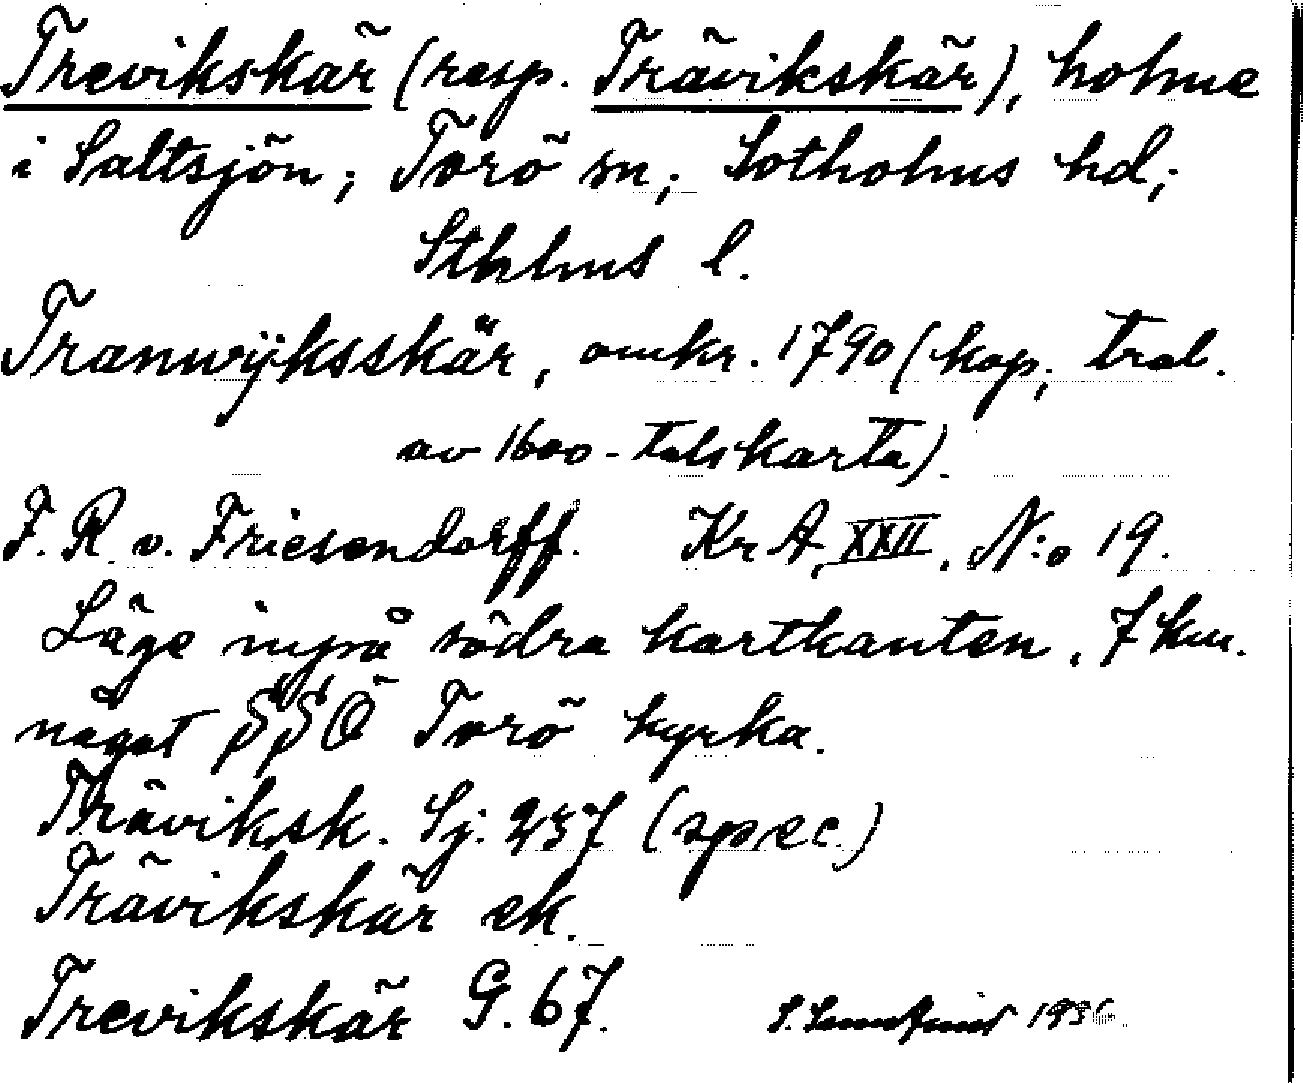 Trevikskär (resp. Trävikskär), holme
i Saltsjön; Torö sn; Sotholms hd;
Sthlms l.
Tranwÿksskär, omkr. 1790 (kop; trol.
av 1600-talskarta).
F. R. v. Friesendorff. Kr A, XXII. N:o 19.
Läge inpå södra kartkanten, 7 km.
något SSÖ Torö kyrka.
Träviksk. Sj. 237 (spec.)
Trävikskär ek.
Trevikskär G. 67. S. 1936